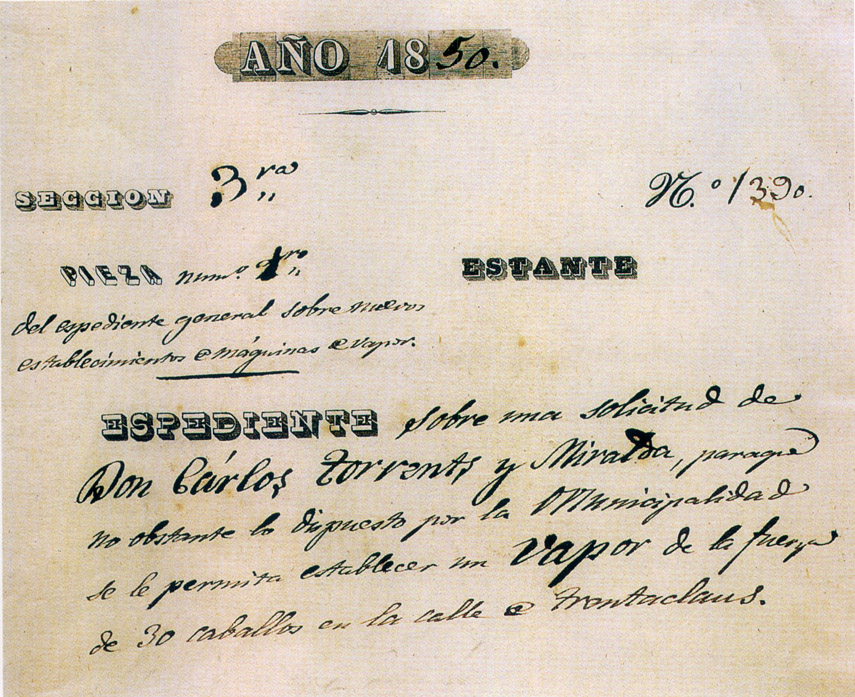 AÑO 1850.
SECCION 3ra
N.º 1390.
PIEZA num.º 1ro
ESTANTE
del espediente general sobre nuevos
establecimientos de máquinas de vapor.
ESPEDIENTE sobre una solicitud de
Don Cárlos Torrents y Miralda, paraque
no obstante lo dispuesto por la Municipalidad
se le permita establecer un vapor de la fuerza
de 30 caballos en la calle de Trentaclaus.